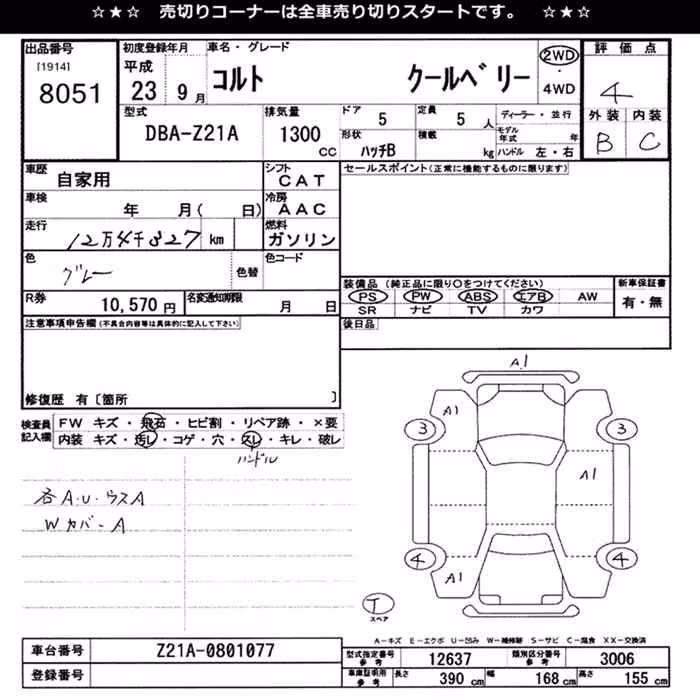 ☆★☆ 売切りコーナーは全車売り切りスタートです。 ☆★☆
出品番号 初度登録年月 車名・グレード 2WD 評価点
[1914] 平成 コルト クールベリー ・ 4
8051 23 9月 4WD 外装 内装
型式 排気量 ドア 5 定員 5人 ディーラー・並行 B C
DBA-Z21A 1300 CC 形状 ハッチB 積載 kg モデル年式 年
ハンドル 左・右
車歴 自家用 シフト CAT セールスポイント(正常に機能するものに限ります)
車検 年 月( 日) 冷房 AAC
走行 12万4千327 km 燃料 ガソリン
色 グレー 色替 色コード
装備品 (純正品に限り○をつけてください) 新車保証書
PS PW ABS エアB AW 有・無
SR ナビ TV カワ
R券 10,570円 名変通知期限 月 日
後日品
注意事項申告欄(不具合内容等は具体的に記入して下さい)
修復歴 有〔箇所 〕
検査員記入欄 FW キズ・飛石・ヒビ割・リペア跡・×要
内装 キズ・汚レ・コゲ・穴・スレ・キレ・破レ
ハンドル
各A.U.ラスA
WカバーA
A1
A1
3 3
A1
4 4
A1
T
スペア
A-キズ E-エクボ U-凹み W-補修跡 S-サビ C-腐食 XX-交換済
車台番号 Z21A-0801077 型式指定番号 参考 12637 類別区分番号 参考 3006
登録番号 車庫証明用 参考 長さ 390 cm 幅 168 cm 高さ 155 cm